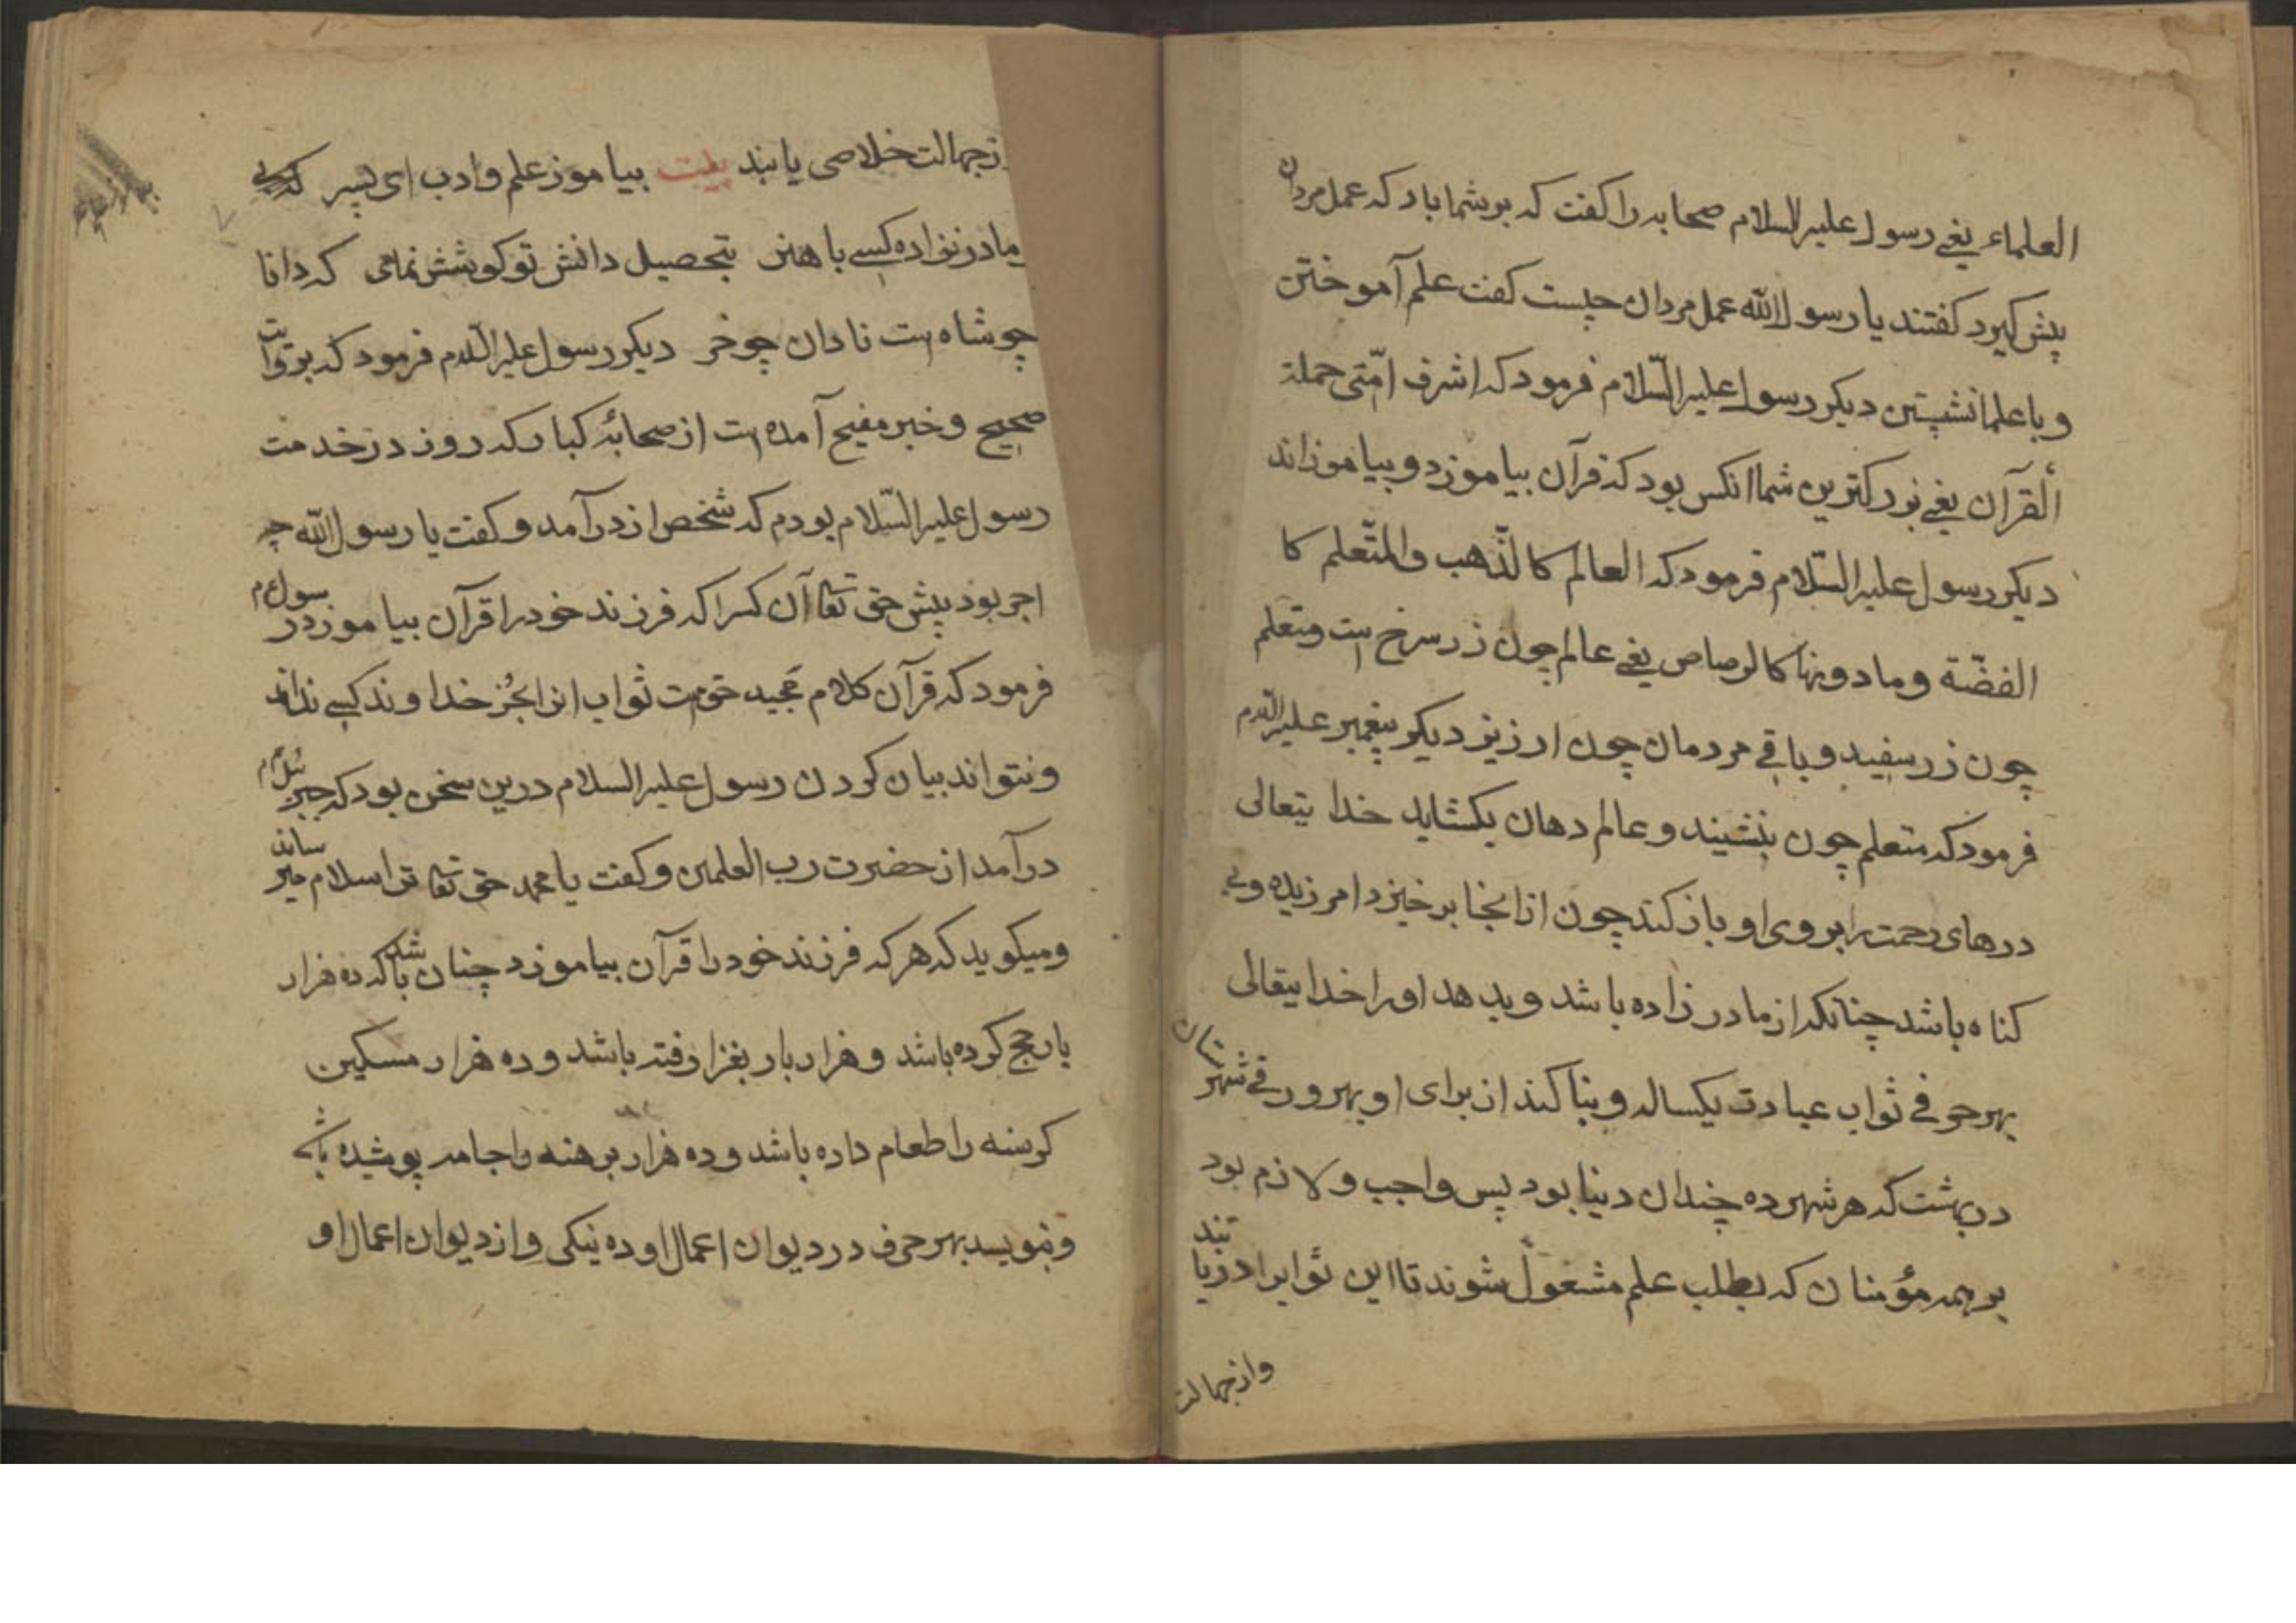 العلماء یعنے رسول علیہ السلام صحابہ را کفت کہ بر شما باد کہ عمل مردان
پیش کیرد کفتند یا رسول الله عمل مردان چیست کفت علم آموختن
و با علما نشستن دیکر رسول علیہ السّلام فرمود کہ اشرف امّتی حملة
ألقرآن یعنے بزرکترین شما انکس بود کہ قرآن بیاموزد و بیاموزاند
دیکر رسول علیہ السّلام فرمود کہ العالم کالذّهب والمتّعلم کا
الفضّة و مادونها کالرصاص یعنے عالم چون زر سرخ است و متعلم
چون زر سفید و باقے مردمان چون ارزیز دیکر پیغمبر علیہ السّلام
فرمود کہ متعلم چون بنشیند و عالم دهان بکشاید خدا یتعالی
درهای رحمت را بر وی او باز کند چون از انجا بر خیزد امرزیده و بی
کناه باشد چنانکہ از مادر زاده باشد و بدهد او را خدا یتعالی
بهر حرفے ثواب عبادت یکسالہ و بنا کند از برای او بهر ورقے شهرستان
در بهشت کہ هر شهر ده چندان دنیا بود پس واجب و لازم بود
بر همہ مؤمنان کہ بطلب علم مشغول شوند تا این ثوابرا دریابند
واز جهالت
از جهالت خلاصی یابند بیت بیاموز علم و ادب ای پسر کہ از
مادر نزاده کسے با هنر بتحصیل دانش تو کوشش نمای کہ دانا
چو شاه است نادان چو خر دیکر رسول علیہ السّلام فرمود کہ بروایت
صحیح و خبر مفیح آمده است از صحابۀ کبار کہ روز در خدمت
رسول علیہ السّلام بودم کہ شخص از در آمد و کفت یا رسول الله چہ
اجر بود پیش حق تعا آن کسرا کہ فرزند خود را قرآن بیاموزد رسول ع م
فرمود کہ قرآن کلام مجید حق است ثواب انرا بجز خداوند کسے نداند
و نتواند بیان کردن رسول علیہ السلام درین سخن بود کہ جبرئل ع م
در آمد از حضرت رب العلمین و کفت یا محمد حق تعا ترا سلام میرساند
و میکوید کہ هر کہ فرزند خود را قرآن بیاموزد چنان باشد کہ ده هزار
بار حج کرده باشد و هزار بار بغزا رفتہ باشد و ده هزار مسکین
کرسنه را طعام داده باشد و ده هزار برهنه را جامہ پوشیده باشد
و بنویسد بهر حرف در دیوان اعمال او ده نیکی و از دیوان اعمال او